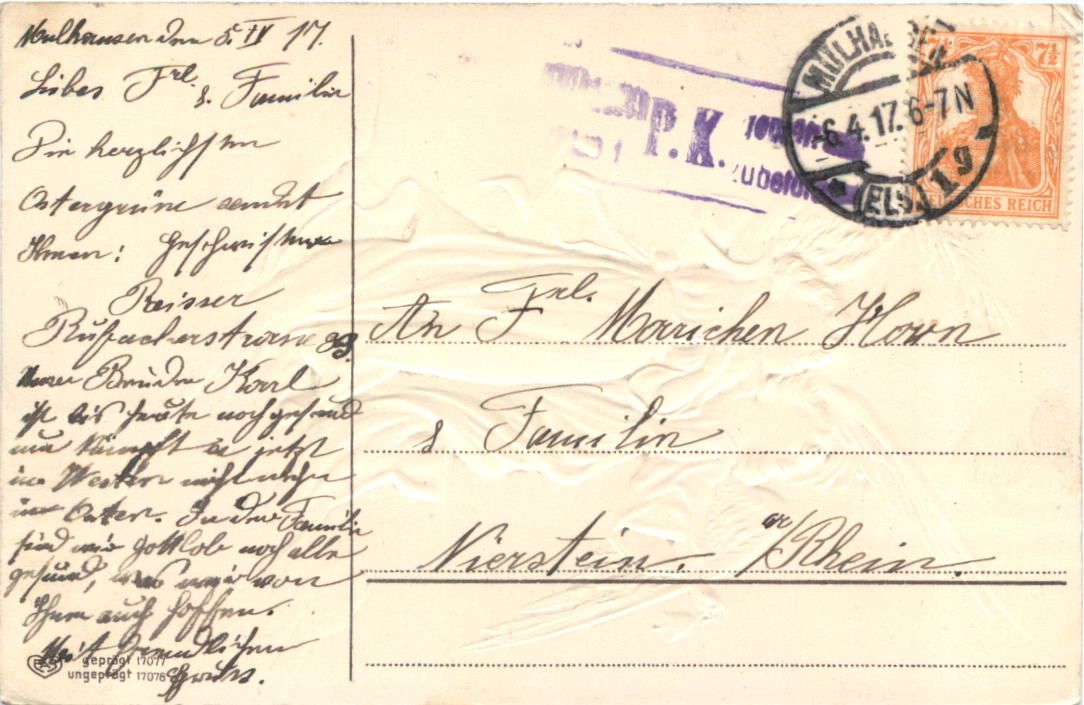 Mulhausen den 5. IV 17.
Liebes Frl.
& Familie
Die herzlichsten
Ostergrüse sendet
Ihnen: Geschwister
Reisser
Rufacherstrasse
Unser Bruder Karl
ist bis heute noch gesund
nur kämpft er jetzt
im Westen nicht mehr
im Osten. In der Familie
sind wir Gottlob noch alle
gesund, was wir von
Ihnen auch hoffen.
Mit freundlichem
Gruss.
geprägt 17077
ungeprägt 17078
P. K.
MÜLHAUSEN
-6.4.17. 6-7N
(ELS.) 1 g
7½ 7½
DEUTSCHES REICH
An Frl. Mariechen Horn
& Familie
Nierstein. a/Rhein.